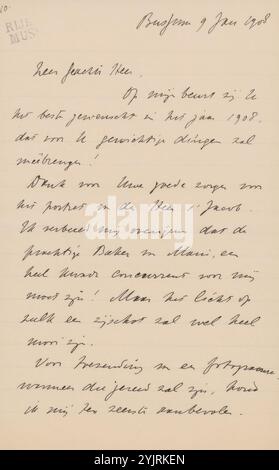 RIJK
MUS
Bussum 9 Jan 1908
Zeer Geachte Heer,
Op mijn beurt zij U
het beste gewenscht in het jaar 1908,
dat voor U gewichtige dingen zal
meebrengen!
Dank voor Uwe goede zorgen voor
het portret in de Heer Jacob.
Ik verbeeld mij overigens dat de
prachtige Baker in Mani, een
heel concurrent voor mij
moet zijn! Maar het licht op
zulk een zijschot zal wel heel
mooi zijn.
Voor toezending van een fotogram
wanneer die gereed zal zijn, houd
ik mij ten zeerste aanbevolen.
alamy
Image ID: 2YJRKEN
www.alamy.com